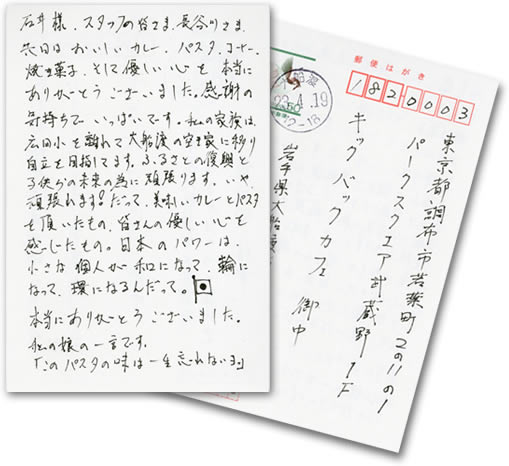 石井様、スタッフの皆さま、長谷川さま、
先日はおいしいカレー、パスタ、コーヒー、
焼き菓子、そして優しい心を本当に
ありがとうございました。感謝の
気持ちで いっぱいです。私の家族は
広田小を離れて大船渡の空き家に移り
自立を目指してます。ふるさとの復興と
子供らの未来の為に頑張ります。いや、
頑張れます!だって、美味しいカレーとパスタ
を頂いたもの、皆さんの優しい心を
感じたもの。日本のパワーは、
小さな個人が和になって、輪に
なって、環になるんだって。
本当にありがとうございました。
私の娘の一言です。
「このパスタの味は一生忘れないョ」
郵便はがき
1820003
船渡
23.4.19
12-18
東京都調布市若葉町2の11の1
パークスクエア武蔵野1F
キックバックカフェ 御中
岩手県大船渡